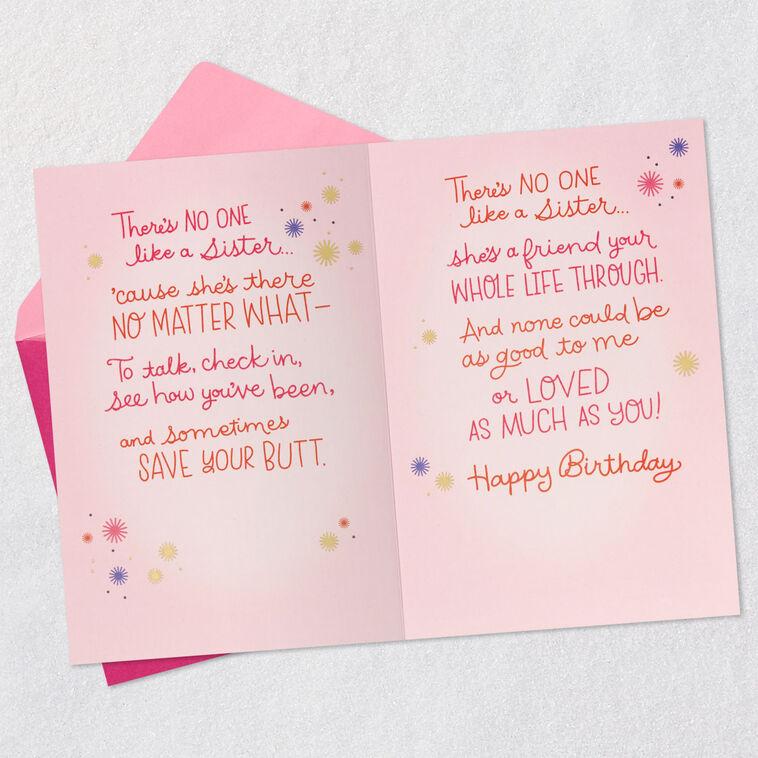 There's NO ONE
like a Sister...
'cause she's there
NO MATTER WHAT—
To talk, check in,
see how you've been,
and sometimes
SAVE YOUR BUTT.
There's NO ONE
like a Sister...
she's a friend your
WHOLE LIFE THROUGH.
And none could be
as good to me
or LOVED
AS MUCH AS YOU!
Happy Birthday